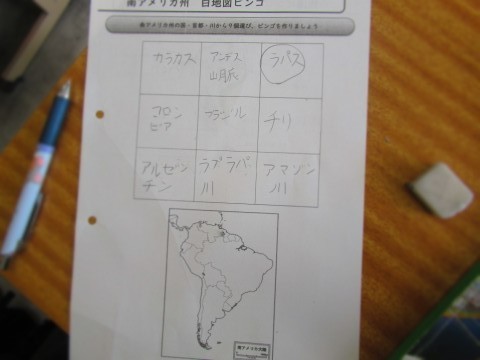 南アメリカ州　白地図ビンゴ
南アメリカ州の国・首都・川から9個選び、ビンゴを作りましょう
カラカス
アンデス
山脈
ラパス
コロン
ビア
ブラジル
チリ
アルゼン
チン
ラプラパ
川
アマゾン
川
南アメリカ大陸